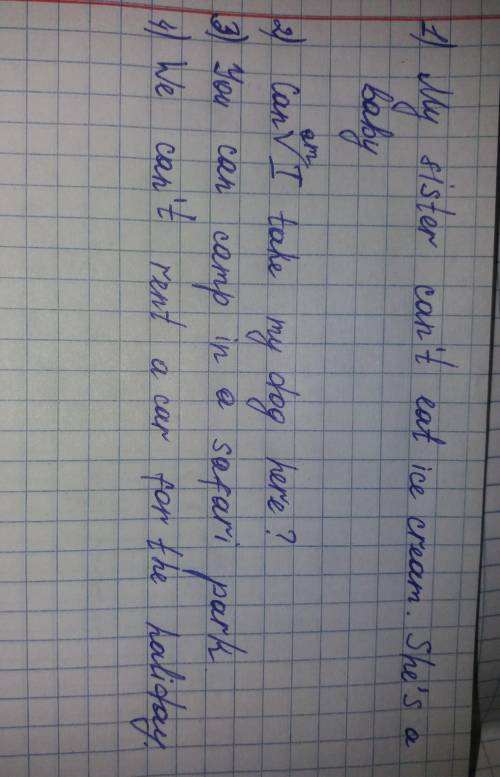 1) My sister can't eat ice cream. She's a
baby
2) Can am I take my dog here?
3) You can camp in a safari park.
4) We can't rent a car for the haliday.